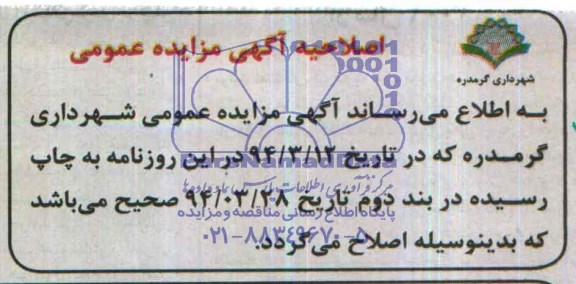 اصلاحیه آگهی مزایده عمومی
شهرداری گرمدره
به اطلاع می‌رساند آگهی مزایده عمومی شهرداری
گرمدره که در تاریخ ۹۴/۳/۱۲ در این روزنامه به چاپ
رسیده در بند دوم تاریخ ۹۴/۰۳/۲۸ صحیح می‌باشد
پایگاه اطلاع رسانی مناقصه و مزایده
که بدینوسیله اصلاح می‌گردد.
۰۲۱-۸۸۳۴۹۶۷۰-۵